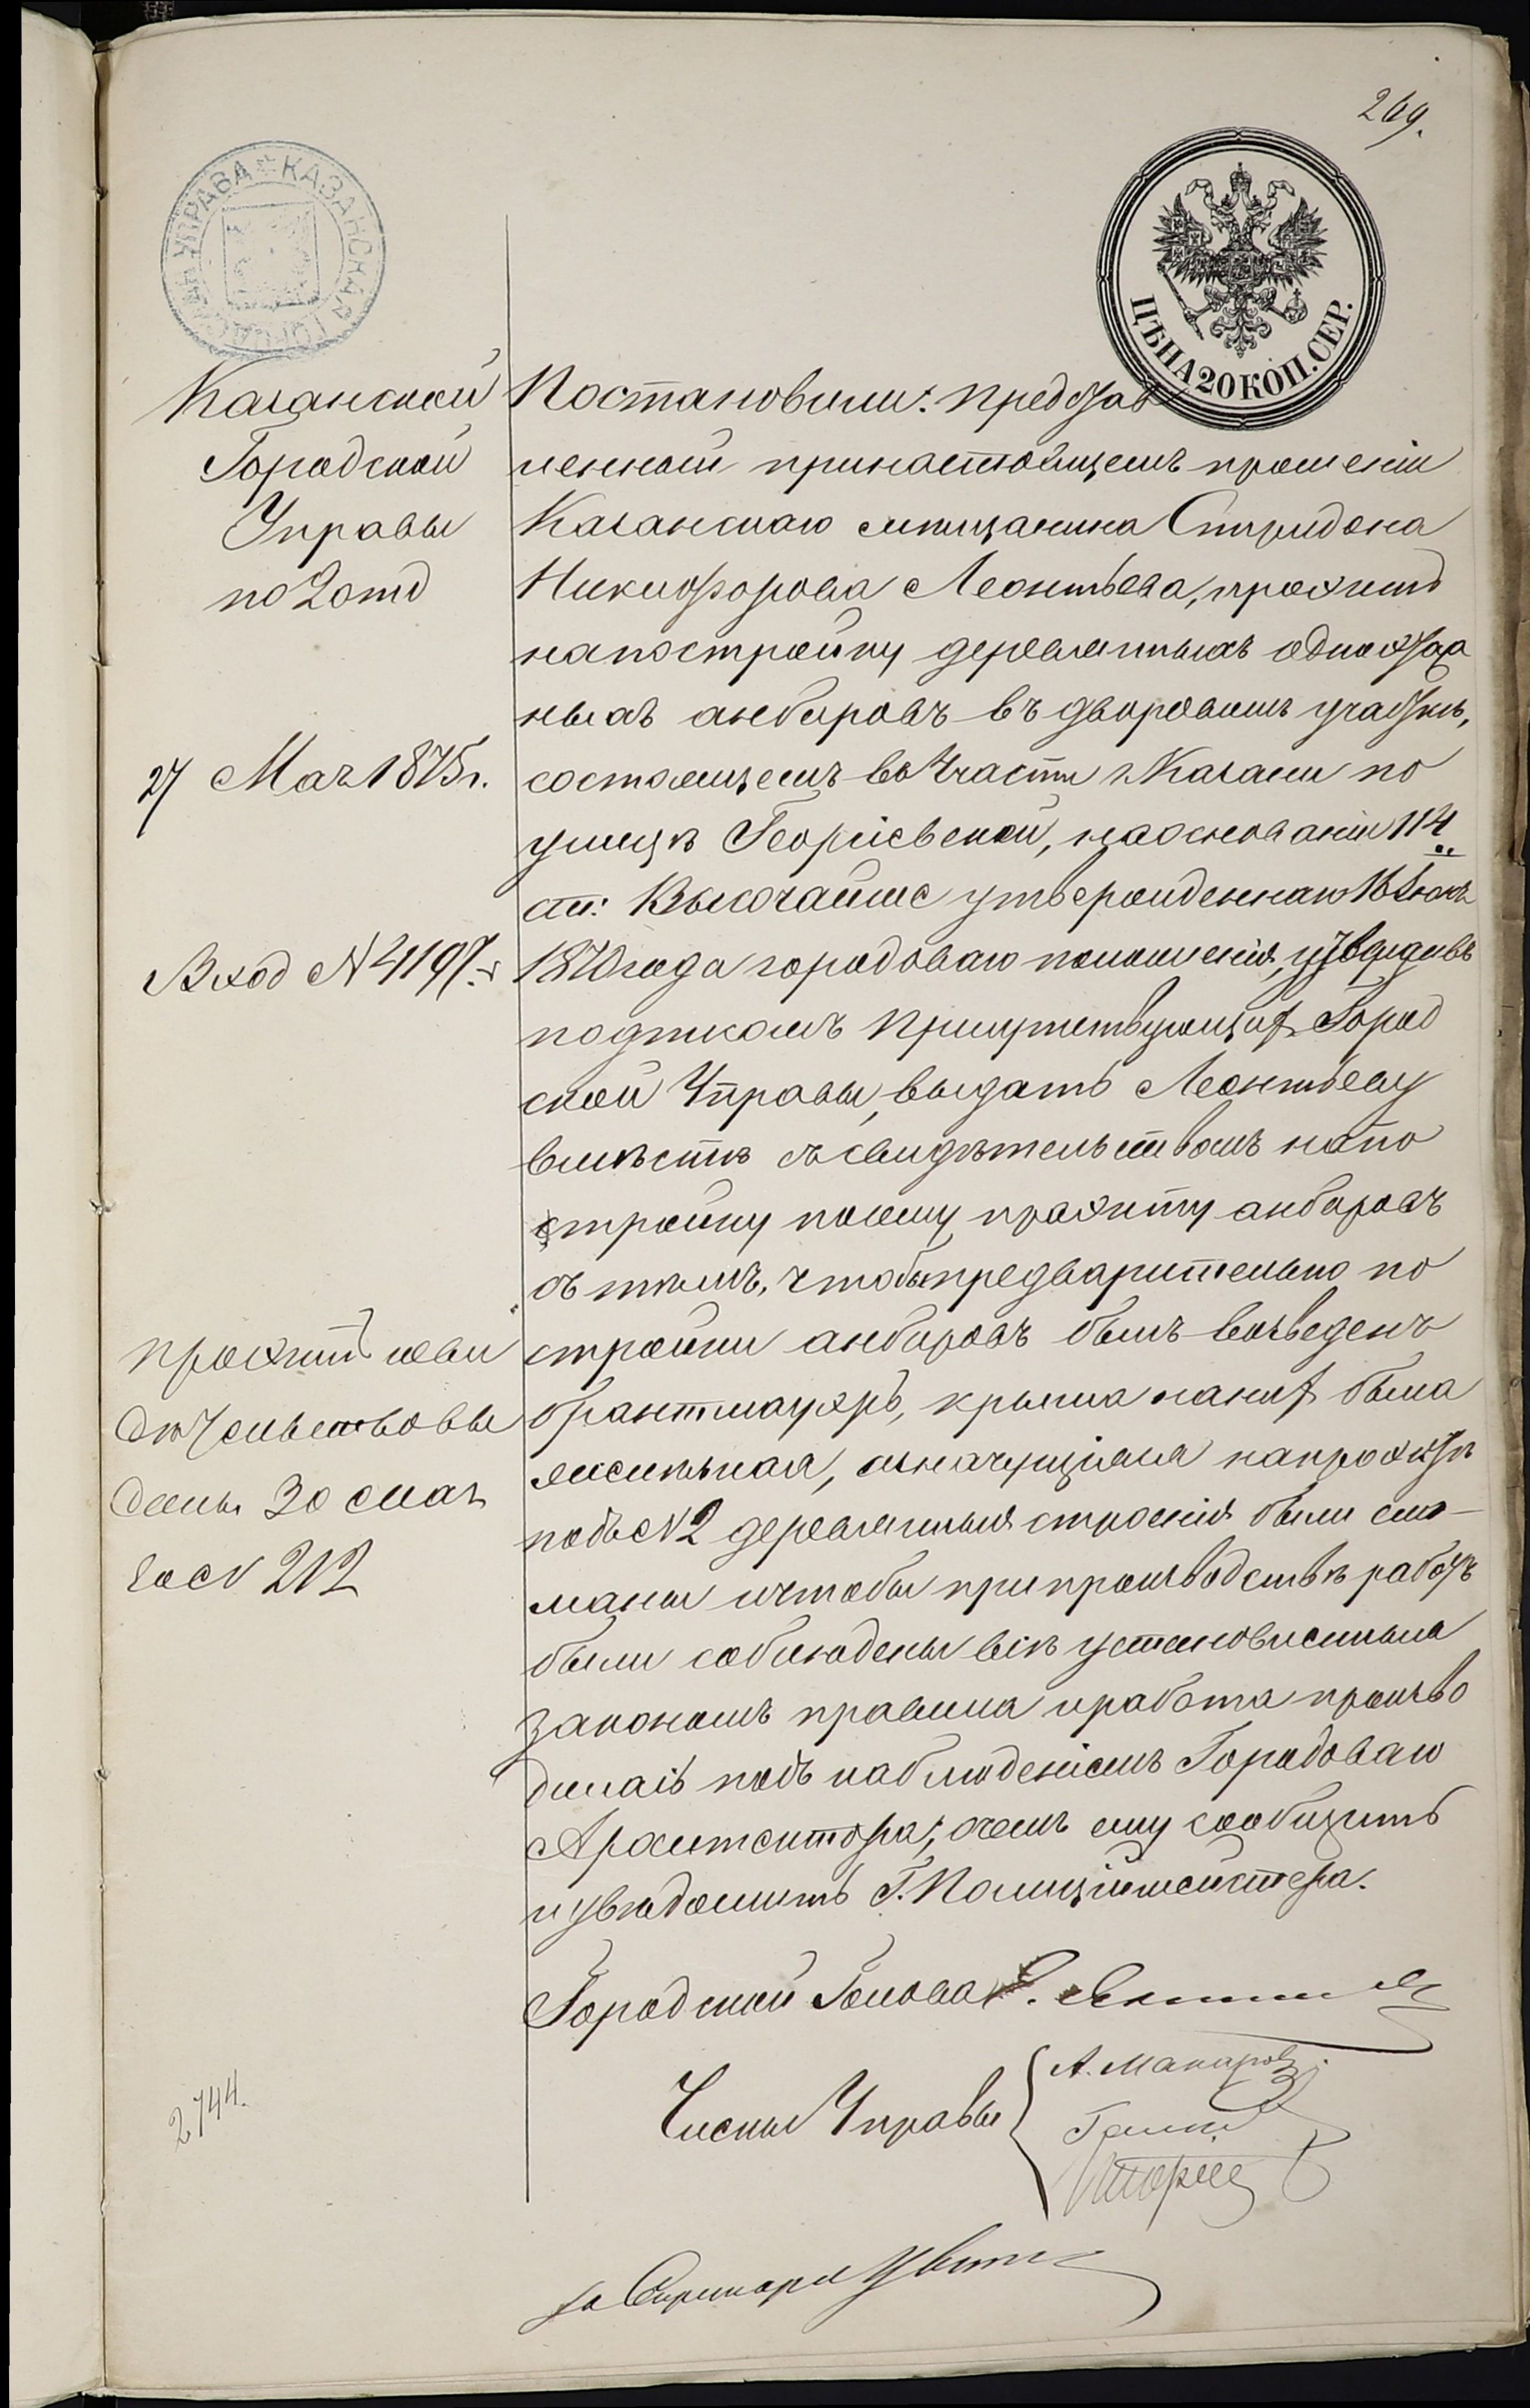 269.
КАЗАНСКАЯ ГОРОДСКАЯ УПРАВА
ЦѢНА 20 КОП. СЕР.
Казанской
Городской
Управы
по 2 отд
27 Мая 1875 г.
Вход № 4197.
проэктъ и сви
дѣтельство вы
даны 30 мая
за № 212
2744.
Постановили: представ
ленный при настоящемъ прошеніи
Казанскаго мѣщанина Спиридона
Никифорова Леонтьева, проэктъ
на постройку деревянныхъ одноэтаж
ныхъ анбаровъ въ дворовомъ участкѣ,
состоящемъ въ части г. Казани по
улицѣ Георгіевской, на основаніи 114
ст: Высочайше утвержденнаго 16 Іюня
1870 года городоваго положенія, утвердивъ
подписомъ присутствующихъ Город
ской Управы, выдать Леонтьеву
вмѣстѣ съ свидѣтельствомъ на по
стройку по сему проэкту анбаровъ
съ тѣмъ, чтобы предварительно по
стройки анбаровъ былъ возведенъ
брантмауэръ, крыша на нихъ была
желѣзная, значущіяся на проэктѣ
подъ № 2 деревянныя строенія были сло-
маны и чтобы при производствѣ работъ
были соблюдены всѣ установленныя
закономъ правила и работа произво
дилась подъ наблюденіемъ Городоваго
Архитектора; о чемъ ему сообщить
и увѣдомить Г. Полиціймейстера.
Городской Голова
Члены Управы
А. Макаров
за Секретаря